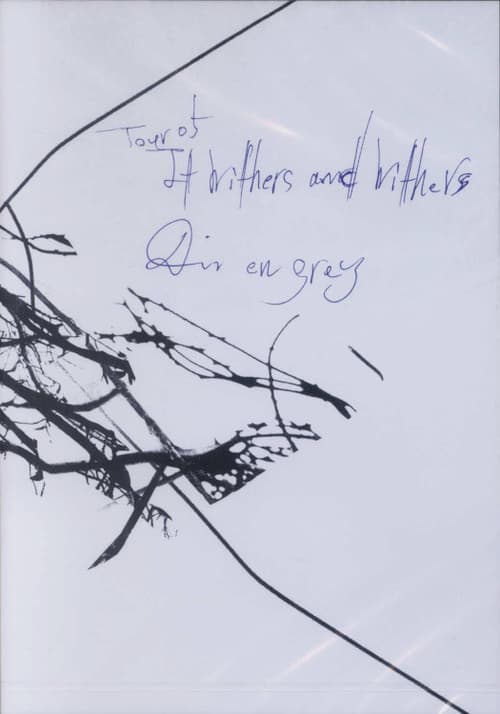 Tour 05
It withers and withers
Dir en grey